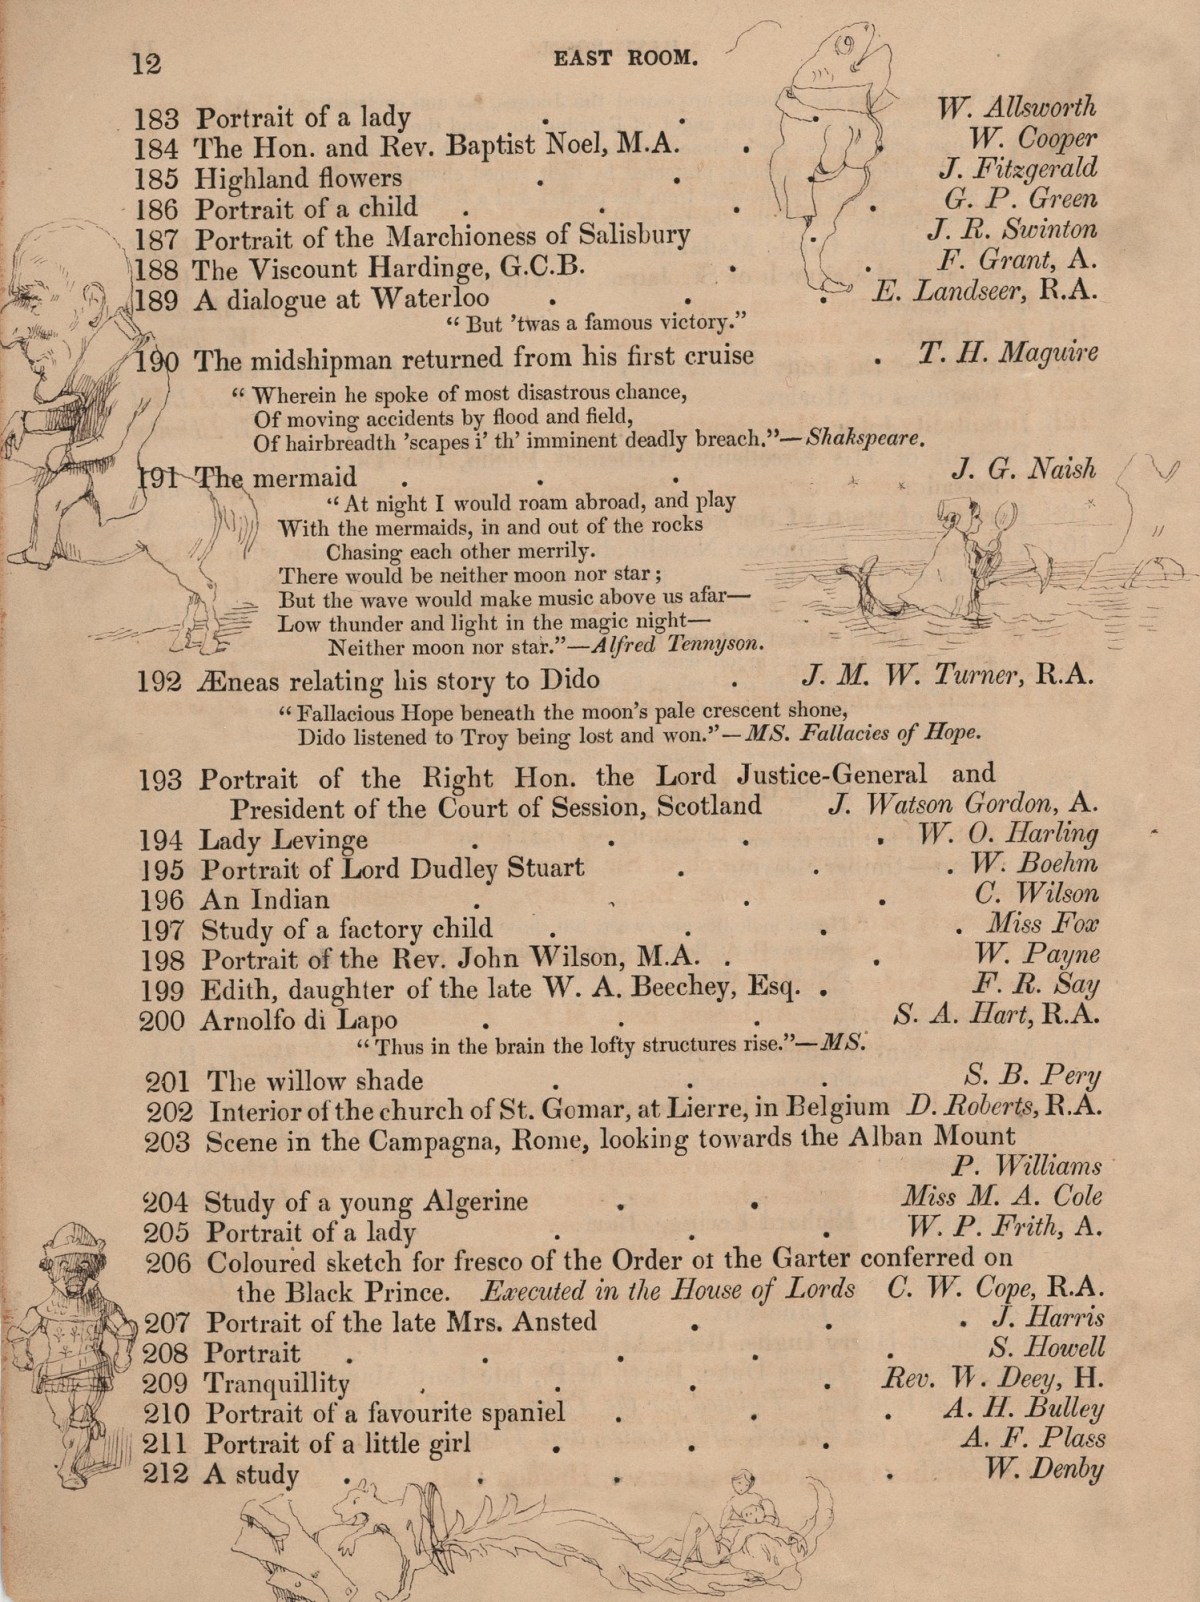 12 EAST ROOM.
183 Portrait of a lady . . W. Allsworth
184 The Hon. and Rev. Baptist Noel, M.A. . . W. Cooper
185 Highland flowers . . . J. Fitzgerald
186 Portrait of a child . . . . G. P. Green
187 Portrait of the Marchioness of Salisbury . J. R. Swinton
188 The Viscount Hardinge, G.C.B. . . F. Grant, A.
189 A dialogue at Waterloo . . . E. Landseer, R.A.
“But ’twas a famous victory.”
190 The midshipman returned from his first cruise . T. H. Maguire
“Wherein he spoke of most disastrous chance,
Of moving accidents by flood and field,
Of hairbreadth ’scapes i’ th’ imminent deadly breach.”—Shakspeare.
191 The mermaid . . . J. G. Naish
“At night I would roam abroad, and play
With the mermaids, in and out of the rocks
Chasing each other merrily.
There would be neither moon nor star;
But the wave would make music above us afar—
Low thunder and light in the magic night—
Neither moon nor star.”—Alfred Tennyson.
192 Æneas relating his story to Dido . J. M. W. Turner, R.A.
“Fallacious Hope beneath the moon’s pale crescent shone,
Dido listened to Troy being lost and won.”—MS. Fallacies of Hope.
193 Portrait of the Right Hon. the Lord Justice-General and
President of the Court of Session, Scotland J. Watson Gordon, A.
194 Lady Levinge . . . . W. O. Harling
195 Portrait of Lord Dudley Stuart . . . W. Boehm
196 An Indian . . . . C. Wilson
197 Study of a factory child . . . . Miss Fox
198 Portrait of the Rev. John Wilson, M.A. . . W. Payne
199 Edith, daughter of the late W. A. Beechey, Esq. . F. R. Say
200 Arnolfo di Lapo . . . S. A. Hart, R.A.
“Thus in the brain the lofty structures rise.”—MS.
201 The willow shade . . . S. B. Pery
202 Interior of the church of St. Gomar, at Lierre, in Belgium D. Roberts, R.A.
203 Scene in the Campagna, Rome, looking towards the Alban Mount
P. Williams
204 Study of a young Algerine . . Miss M. A. Cole
205 Portrait of a lady . . . W. P. Frith, A.
206 Coloured sketch for fresco of the Order of the Garter conferred on
the Black Prince. Executed in the House of Lords C. W. Cope, R.A.
207 Portrait of the late Mrs. Ansted . . . J. Harris
208 Portrait . . . . . S. Howell
209 Tranquillity . . . . Rev. W. Deey, H.
210 Portrait of a favourite spaniel . . . A. H. Bulley
211 Portrait of a little girl . . . A. F. Plass
212 A study . . . . W. Denby